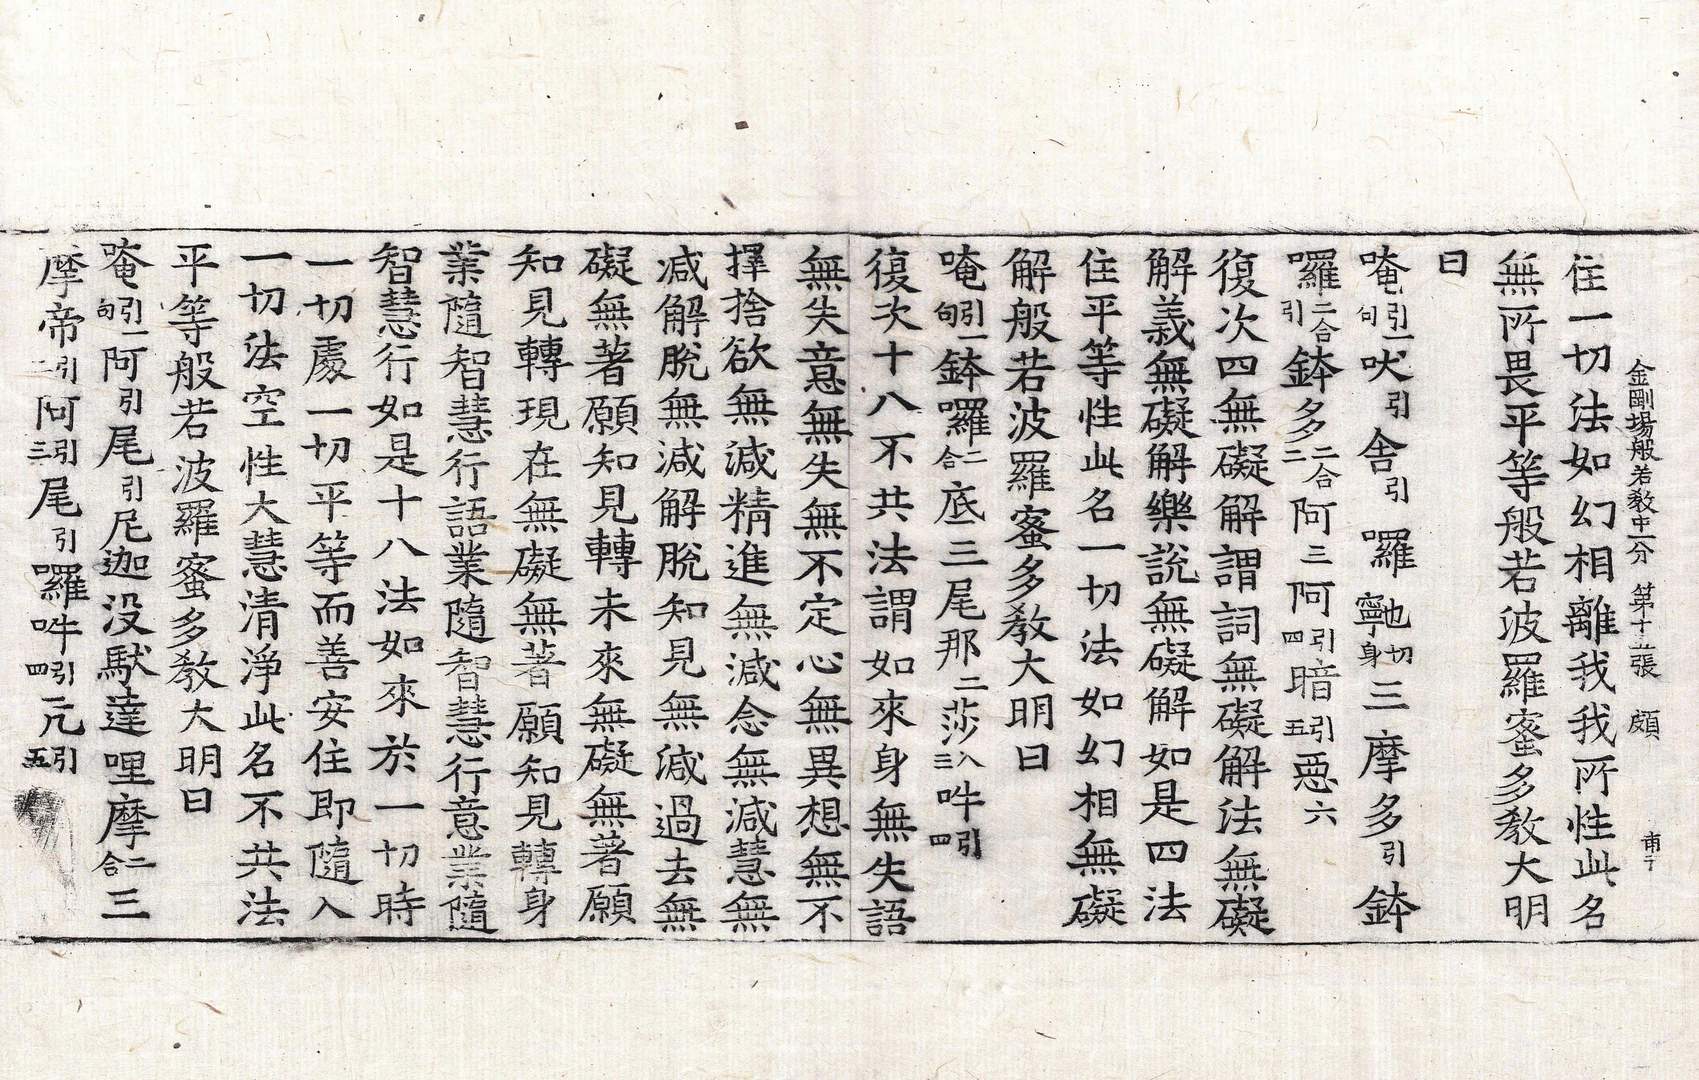 金剛場般若敎中一分 第十五張 頗
住一切法如幻相離我我所性此名
無所畏平等般若波羅蜜多敎大明
曰
唵引一句吠引舍引囉寧也切身三摩多引鉢
囉二合引鉢多二合二阿三阿引四暗引五惡六
復次四無礙解謂詞無礙解法無礙
解義無礙解樂說無礙解如是四法
住平等性此名一切法如幻相無礙
解般若波羅蜜多敎大明曰
唵引一句鉢囉二合底三尾那二莎入三吽引四
復次十八不共法謂如來身無失語
無失意無失無不定心無異想無不
擇捨欲無減精進無減念無減慧無
減解脫無減解脫知見無減過去無
礙無著願知見轉未來無礙無著願
知見轉現在無礙無著願知見轉身
業隨智慧行語業隨智慧行意業隨
智慧行如是十八法如來於一切時
一切處一切平等而善安住即隨入
一切法空性大慧清淨此名不共法
平等般若波羅蜜多敎大明曰
唵引一句阿引尾引尼迦沒馱達哩摩二合三
摩帝引二阿引三尾引囉吽引四亢引五